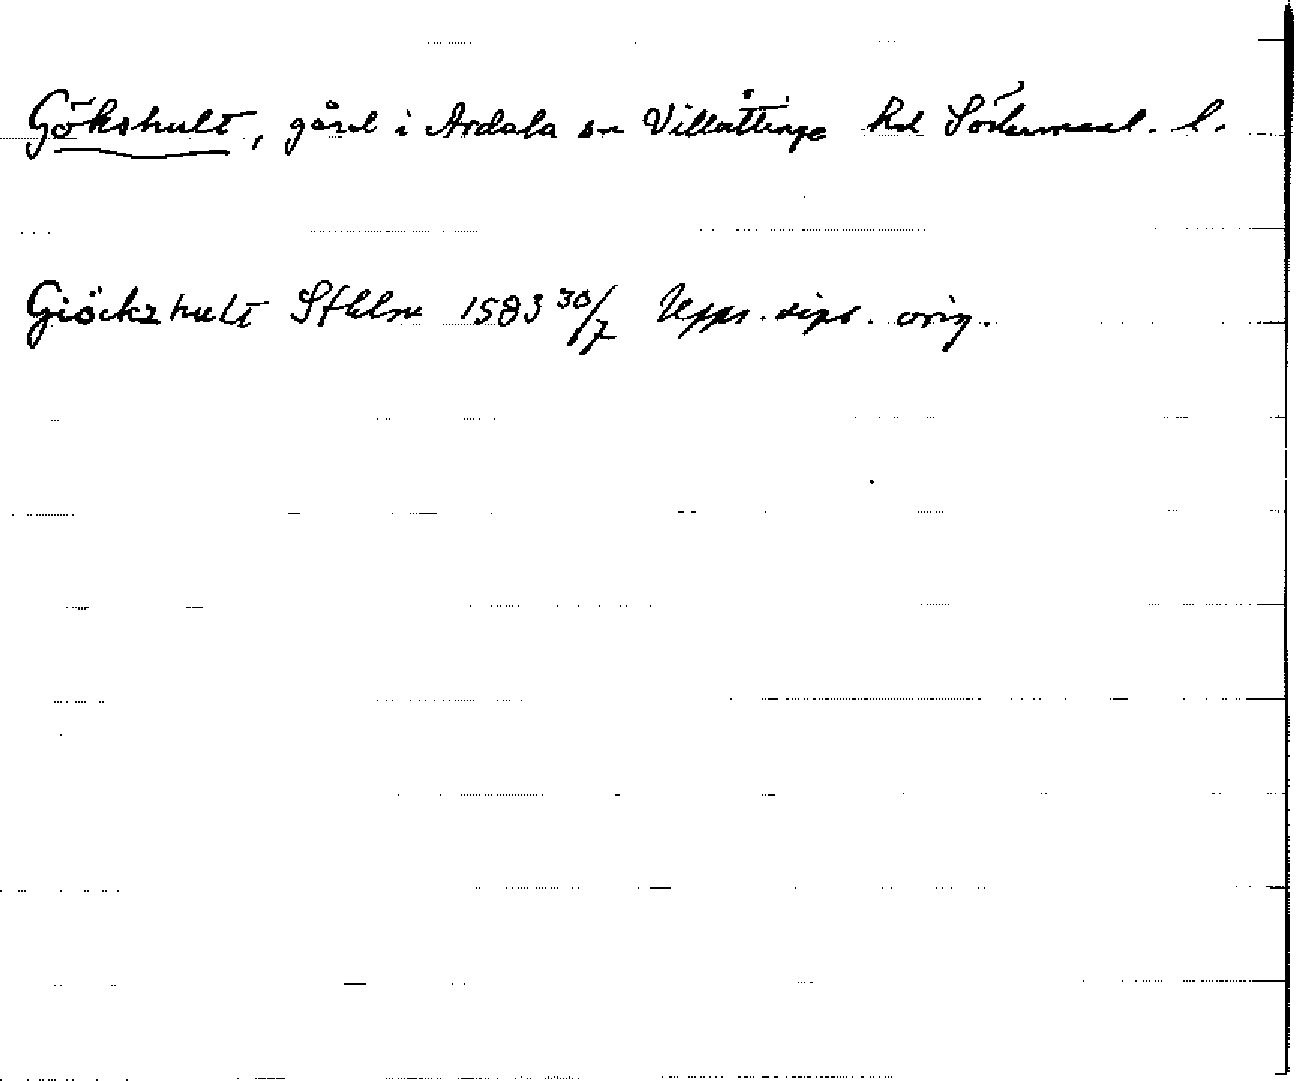 Gökshult, gård i Ardala sn Villåttinge hd Södermanl. l.
Giöckzhult Sthlm 1583 30/7 Upps. dipl. orig.